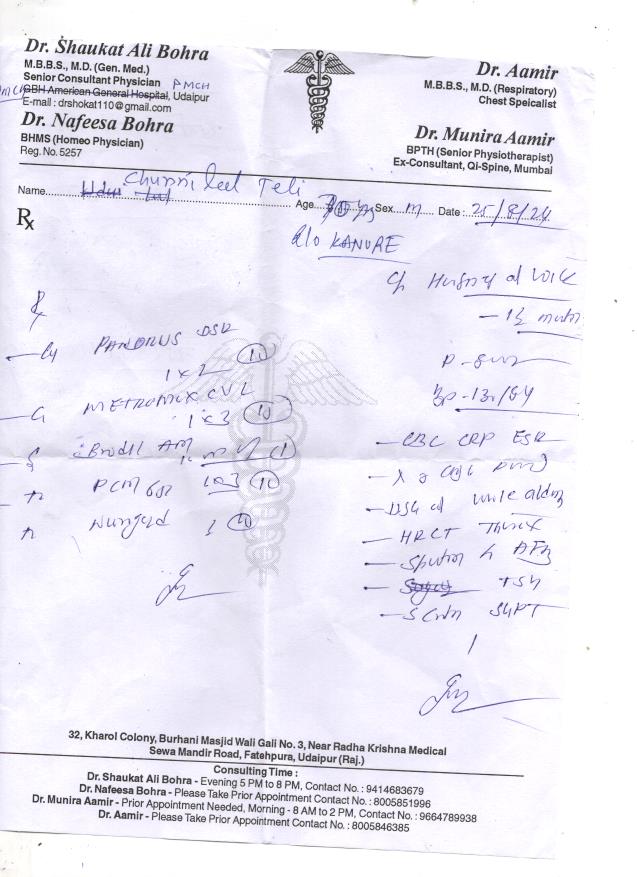 Dr. Shaukat Ali Bohra
M.B.B.S., M.D. (Gen. Med.)
Senior Consultant Physician PMCH
GBH American General Hospital, Udaipur
E-mail : drshokat110@gmail.com
Dr. Nafeesa Bohra
BHMS (Homeo Physician)
Reg. No. 5257
Dr. Aamir
M.B.B.S., M.D. (Respiratory)
Chest Speicalist
Dr. Munira Aamir
BPTH (Senior Physiotherapist)
Ex-Consultant, Qi-Spine, Mumbai
Name Chunni Lal Teli Age 70 Sex M Date : 25/8/24
Rx
R/o KANORE
- 1½
PANORUS DSR
1 x 2 10
1 x 3 10
BP - 130/84
- CBC CRP ESR
Brodil AM
PCM 10
- USG of whole abdn
- HRCT Thorax
- Sputum AFB
- TSH
SGPT
32, Kharol Colony, Burhani Masjid Wali Gali No. 3, Near Radha Krishna Medical
Sewa Mandir Road, Fatehpura, Udaipur (Raj.)
Consulting Time :
Dr. Shaukat Ali Bohra - Evening 5 PM to 8 PM, Contact No. : 9414683679
Dr. Nafeesa Bohra - Please Take Prior Appointment Contact No. : 8005851996
Dr. Munira Aamir - Prior Appointment Needed, Morning - 8 AM to 2 PM, Contact No. : 9664789938
Dr. Aamir - Please Take Prior Appointment Contact No. : 8005846385